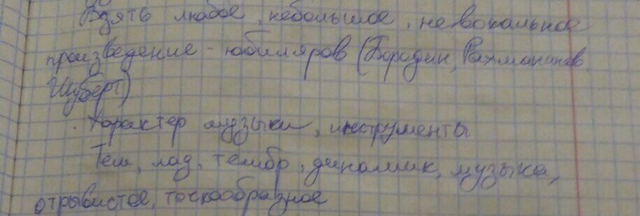 Взять любое, небольшое, не вокальное
произведение - юбиляров (Бородин, Рахманинов
Шуберт)
Характер музыки, инструменты
Темп, лад, тембр, динамик, музыка,
отрывистое, точкообразное